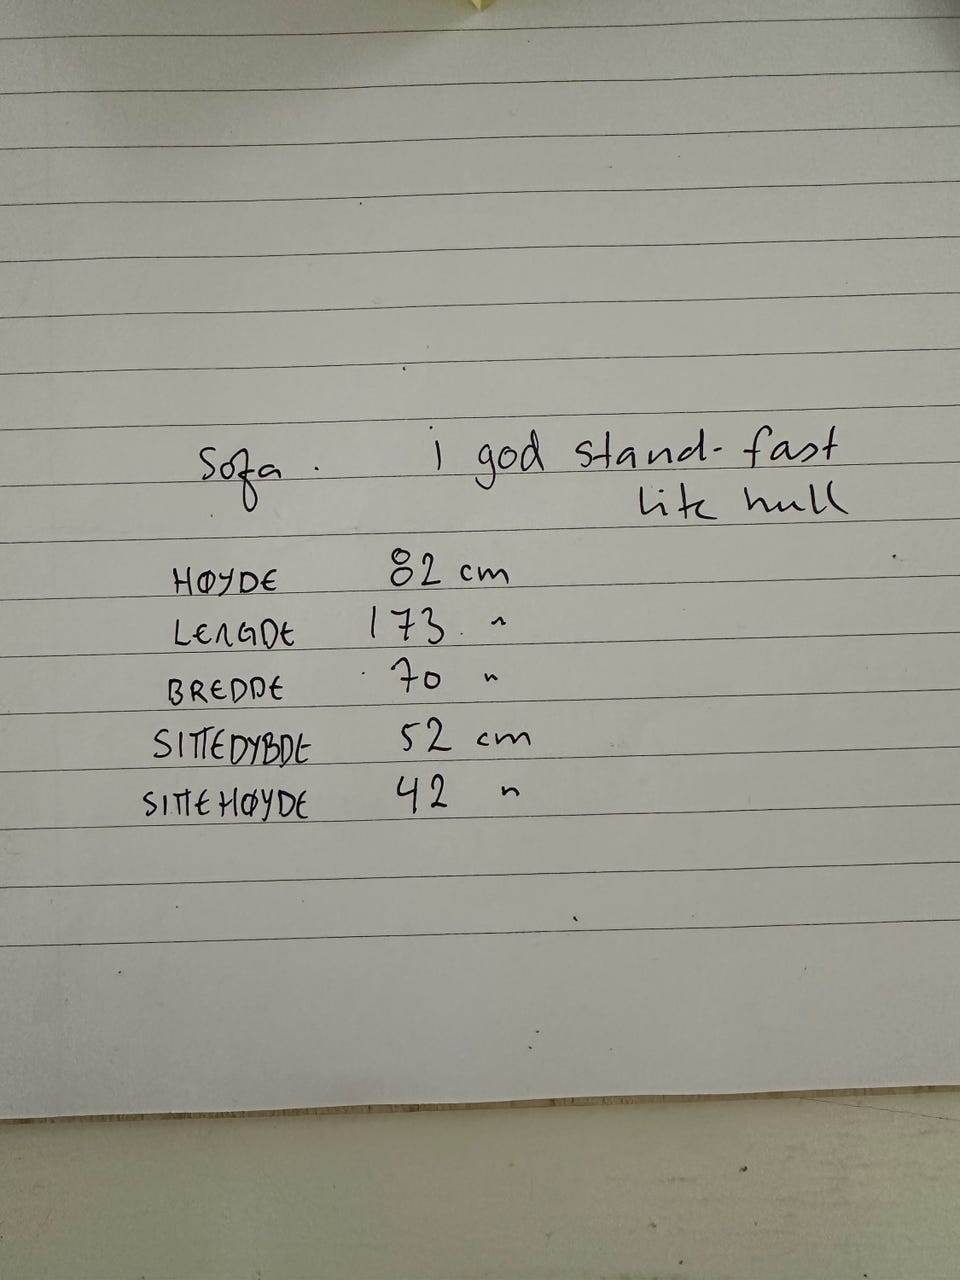 Sofa. i god stand- fast
lite hull
HØYDE 82 cm
LENGDE 173 "
BREDDE 70 "
SITTEDYBDE 52 cm
SITTEHØYDE 42 "